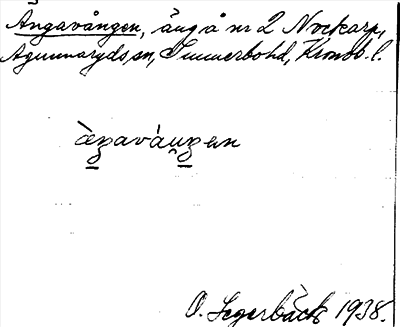 Ängavången, äng å nr 2 Nockarp,
Agunnaryds sn, Sunnerbo hd, Kronob. l.
O. Segerbäck 1938.